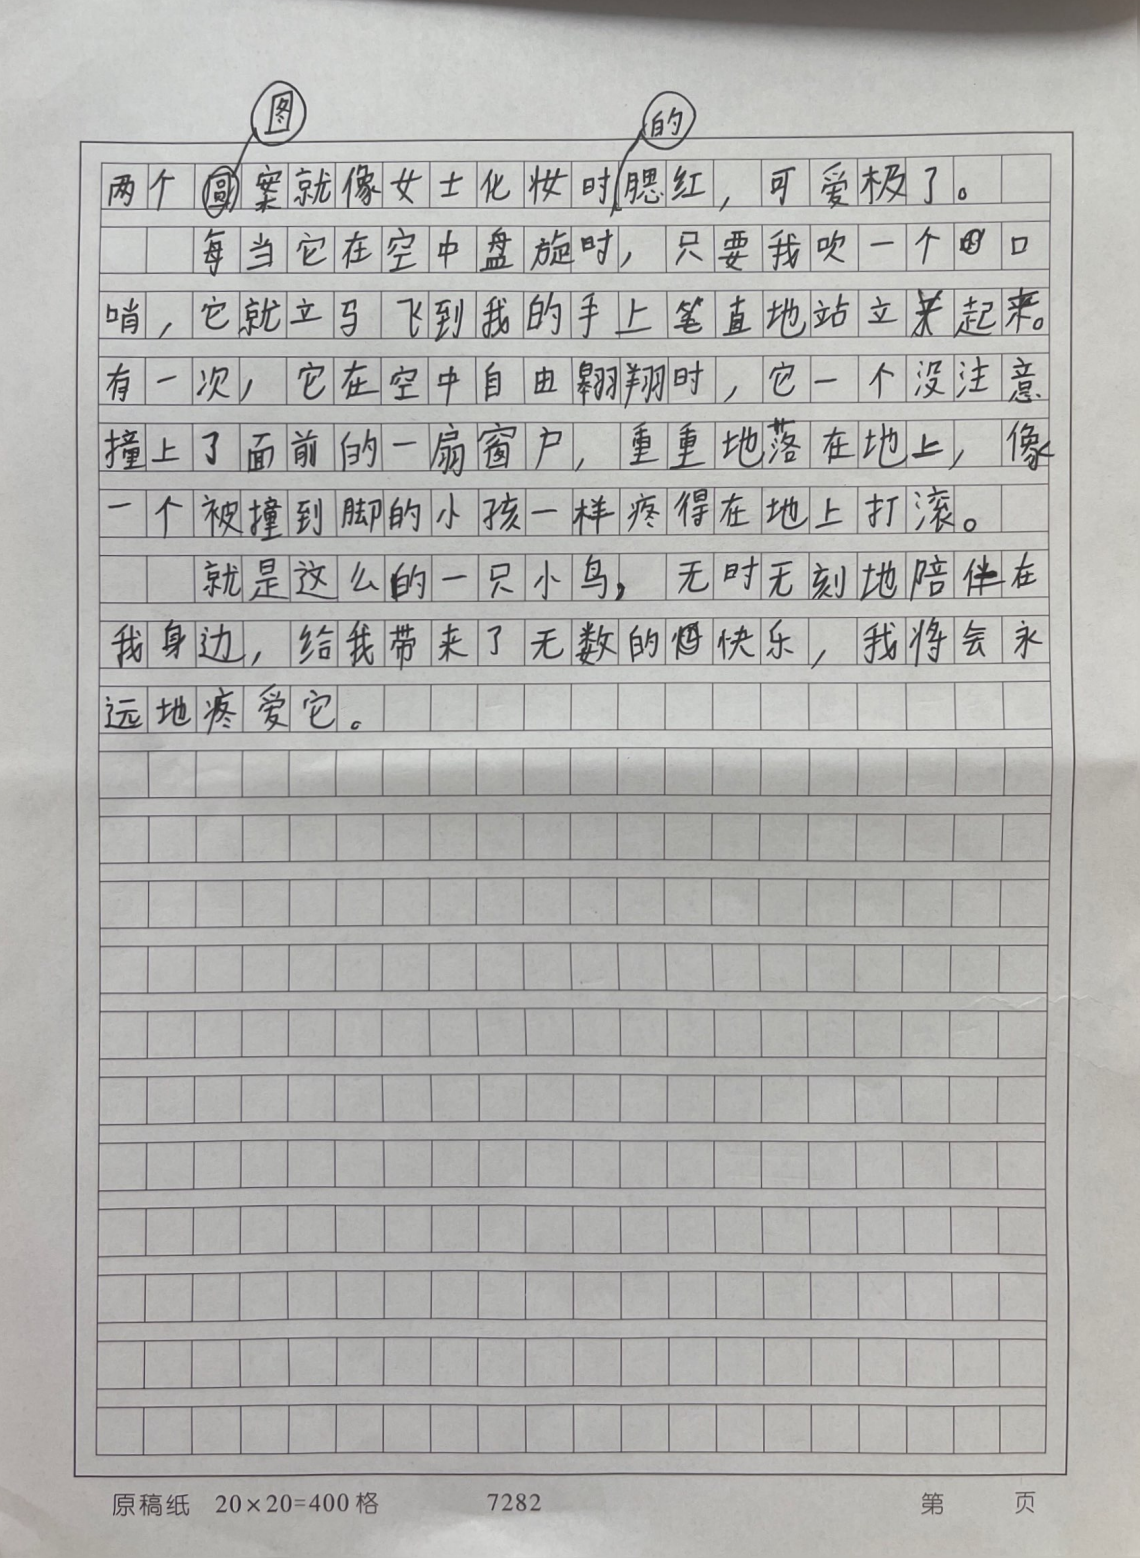 图 的
两个图案就像女士化妆时的腮红，可爱极了。
每当它在空中盘旋时，只要我吹一个口
哨，它就立马飞到我的手上笔直地站立起来。
有一次，它在空中自由翱翔时，它一个没注意
撞上了面前的一扇窗户，重重地落在地上，像
一个被撞到脚的小孩一样疼得在地上打滚。
就是这么的一只小鸟，无时无刻地陪伴在
我身边，给我带来了无数的快乐，我将会永
远地疼爱它。
原稿纸 20×20=400格 7282 第 页